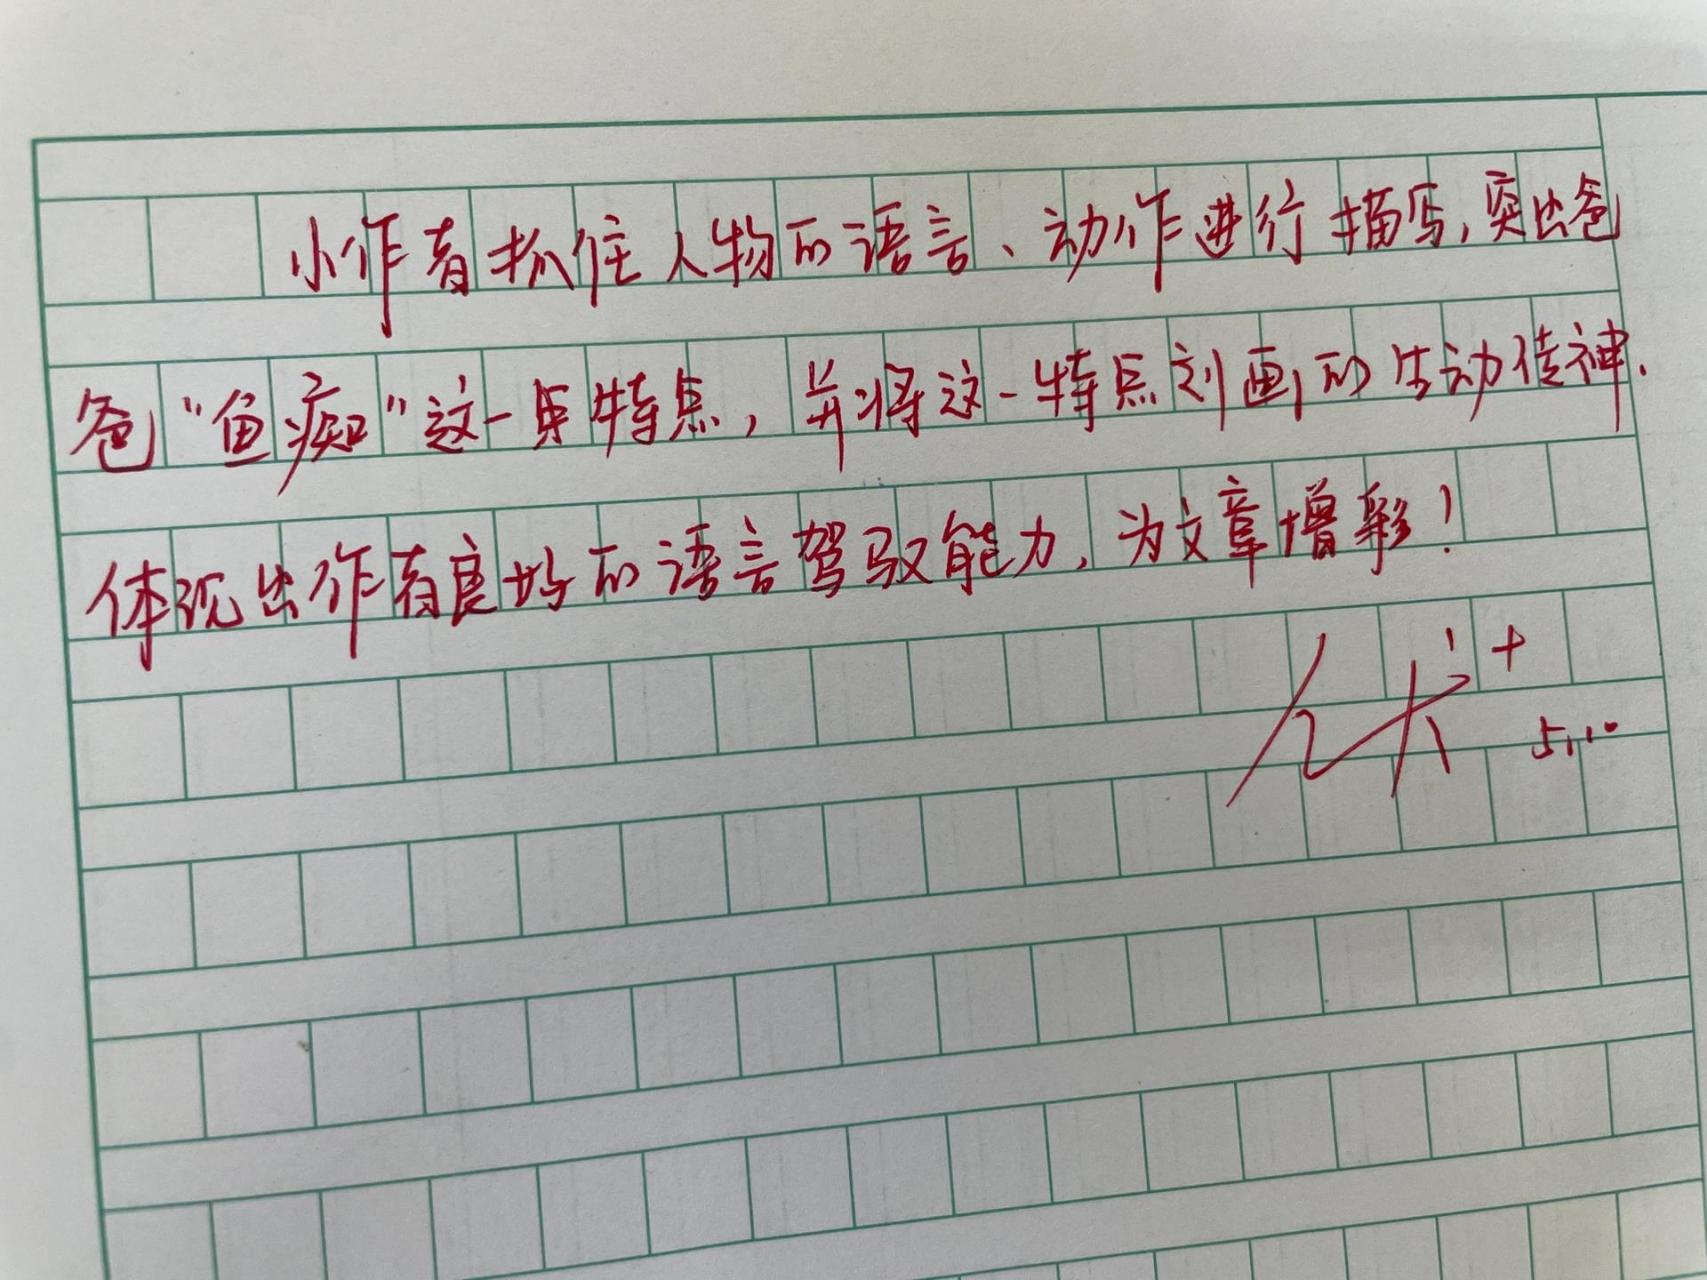 小作者抓住人物的语言、动作进行描写,突出爸
爸“鱼痴”这一特点,并将这一特点刻画的生动传神.
体现出作者良好的语言驾驭能力,为文章增彩!
优+
5.10